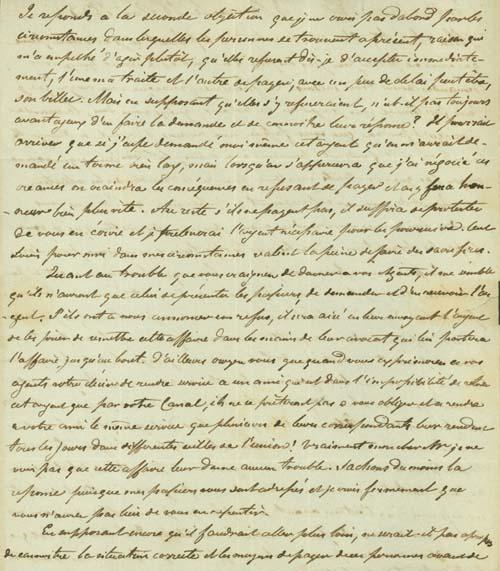 Je reponds a la seconde objection que je ne crois pas d'abord que les
circonstances dans lesquelles les personnes se trouvent apresent, raison qui
m'a empeché d'agir plutôt, qu'elles refusent dis-je d'accepter immediate-
ment, l'une ma traite et l'autre de payer, avec un peu de delai peut être,
son billet. Mais en supposant qu'elles s'y refuseraient, n'est-il pas toujours
avantageux d'en faire la demande et de connoitre leur réponse? Il pourrait
arriver que si j'eusse demandé moi même cet argent qu'on m'aurait de-
mandé un terme très long, mais lorsqu'on s'appercevra que j'ai négocié ces
creances on craindra les conséquences en refusant de payer et on y fera hon-
neur bien plus vite. Au reste s'ils ne payent pas, il suffira de protester
de vous en ecrire et je l'argent nécessaire pour les poursuivre. Cent
Louis pour moi dans mes circonstances valent la peine de faire des sacrifices.
Quant au trouble que vous craignez de donner a vos agents, il me semble
qu'ils n'auront que celui de présenter les papiers de demander et d'en recevoir l'ar-
gent; S'ils ont a nous annoncer un refus, il sera aisé en leur envoyant l'argent
de les prier de remettre cette affaire dans les mains de leur avocat qui lui portera
l'affaire jusqu'au bout. D'ailleurs croyez vous que quand vous exprimerez a vos
agents votre desir de rendre service a un ami qui est dans l'impossibilité de retirer
cet argent que par votre Canal, ils ne se prêteront pas a vous obliger et a rendre
a votre ami le même service que plusieurs de leurs correspondants leur rendent
tous les jours dans differentes villes de l'union? Vraiment mon cher Mr. je ne
vois pas que cette affaire leur donne aucun trouble. Sachons du moins la
reponse puisque mes papiers vous sont adressés et je crois fermement que
vous n'aurez pas lieu de vous en repentir.
En supposant encore qu'il faudrait aller plus loin, ne serait-il pas apropos
de connoitre la situation correcte et les moyens de payer de ces personnes avant de